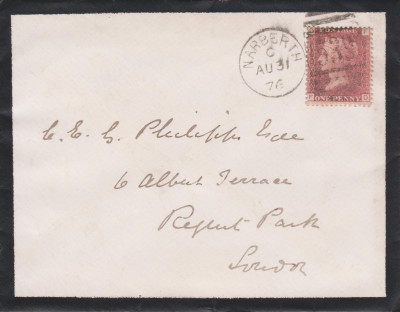 NARBERTH
C
AU 31
76
ONE PENNY
C. E. G. Philipps Esqe
6 Albert Terrace
Regent Park
London